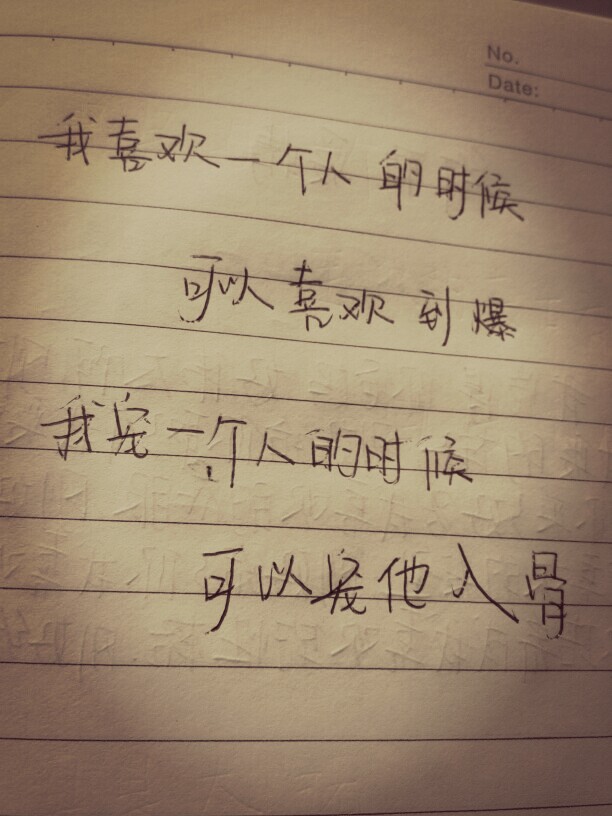 No.
Date:
我喜欢一个人的时候
可以喜欢到爆
我宠一个人的时候
可以宠他入骨